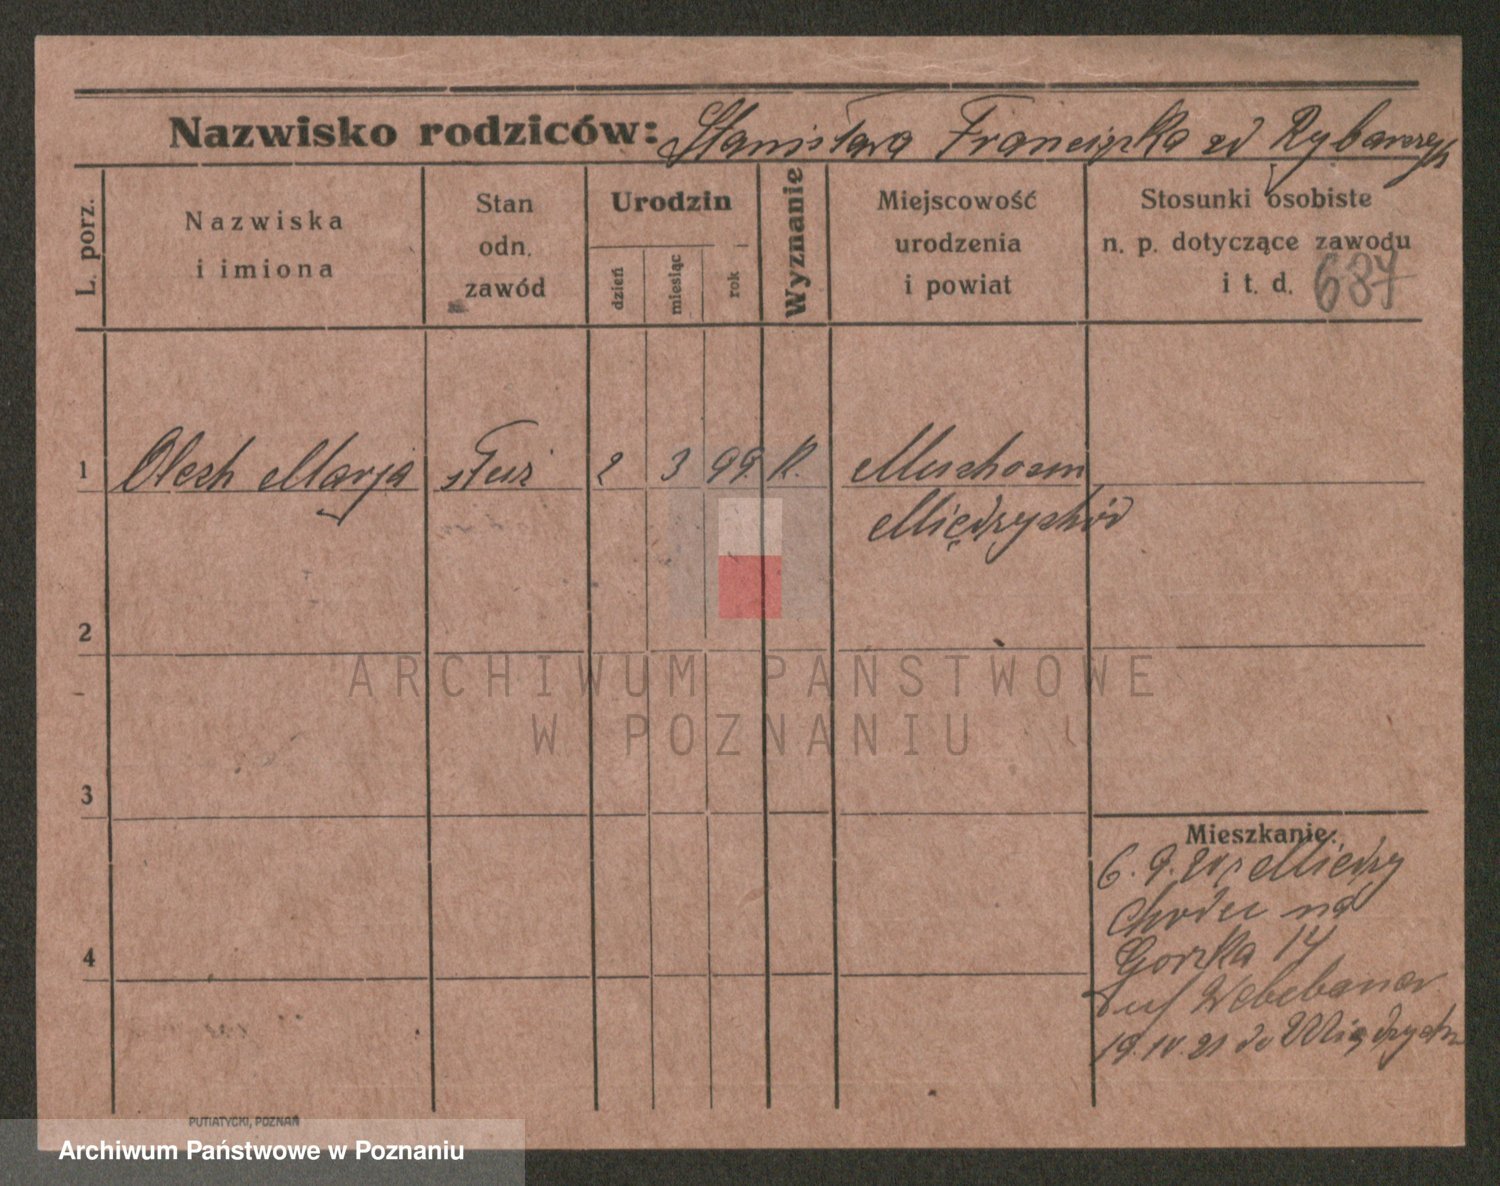 Nazwisko rodziców: Stanisława Franciszka zd Rybarczyk
L. porz.
Nazwiska
i imiona
Stan
odn.
zawód
Urodzin
dzień
miesiąc
rok
Wyznanie
Miejscowość
urodzenia
i powiat
Stosunki osobiste
n. p. dotyczące zawodu
i t. d. 687
1 Olech Marja służ 2 3 99. K. Muchocin
Międzychód
2
3
4
Mieszkanie:
6. 9. 20 z Między
chodu na
Gorska 14
19. IV. 21 do Międzych
PUTIATYCKI, POZNAŃ
ARCHIWUM PAŃSTWOWE
W POZNANIU
Archiwum Państwowe w Poznaniu